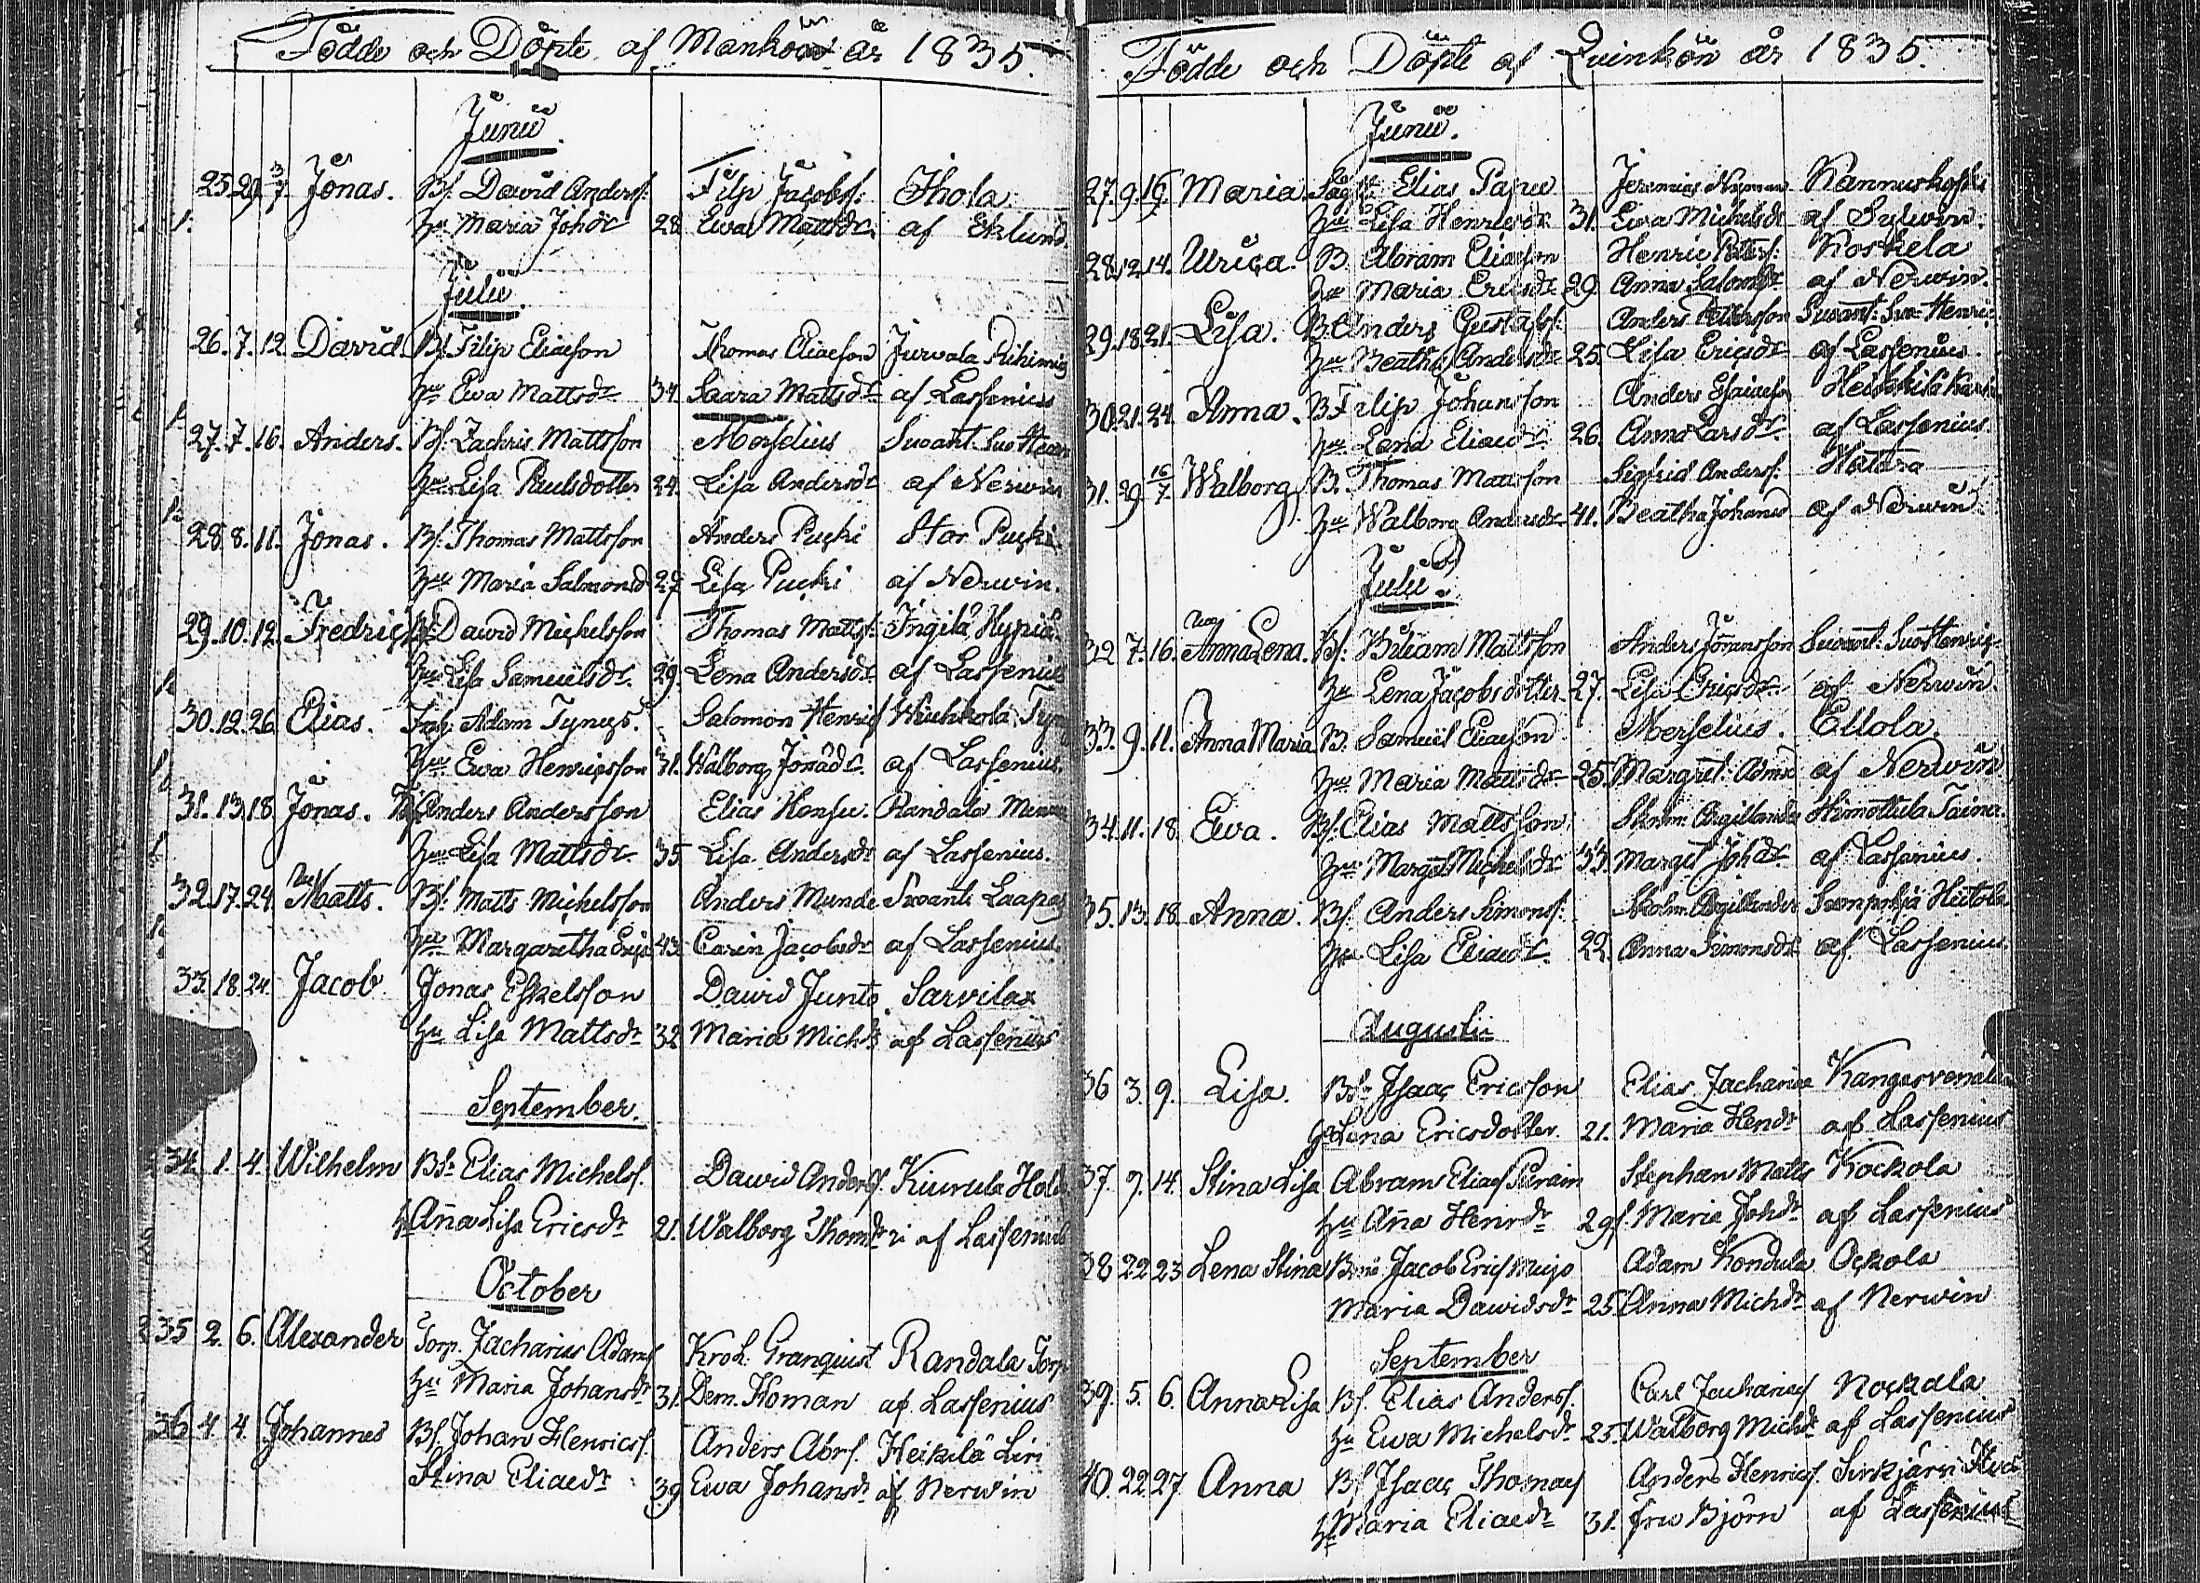 Födde och Döpte af Mankön år 1835.
Junii.
25. 29. 3/7. Jonas. Bf. David Anders: Filp Jacobs: Ihola
Hu Maria Johdr 28 Ewa Mattsdr. af Eklund
Julii.
26. 7. 12. David. Bf. Filip Eliaeson Thomas Eliaeson Jurvala
Hu Ewa Mattsdr 34. Saara Mattsdr af Lassenius
27. 7. 16. Anders. Bf. Zachris Mattsson Morselius Suvant.
Hu Lisa Paulsdotter 24. Lisa Andersdr af Nerwin
28. 8. 11. Jonas. Bf. Thomas Mattsson Anders Pucki Stor Pucki.
Hu Maria Salmonsd 27 Lisa Pucki af Nerwin.
29. 10. 12. Fredric Bf. David Michelsson Thomas Matts: Ingilä Hypiä
Hu Lisa Samuelsdr. 29. Lena Andersdr af Lassenius
30. 12. 26. Elias. Adam Tynys. Salomon Henric
Hu Ewa Henricsson 31. Walborg Jonadr. af Lassenius.
31. 13. 18. Jonas. Bf. Anders Andersson Elias Randala
Hu Lisa Mattsdr 35 Lisa Andersdr af Lassenius.
32. 17. 24. Matts. Bf. Matts Michelsson Anders Munde Suvanto
Hu Margaretha 43. Carin Jacobsdr af Lassenius.
33. 18. 24. Jacob Jonas Eskelsson David Junto. Sarvilax
Hu Lisa Mattsdr 32 Maria Michdr af Lassenius
September.
34 1. 4. Wilhelm Bdr Elias Michels. David Anders. Kiurula
Hu Aña Lisa Ericsdr 21. Walborg Thomdr af Lassenius
October
35 2. 6. Alexander Torp. Zacharias Adams Kroh. Granquist Randala Torp
Hu Maria Johansdr 31. Dem. Homan af Lassenius
36 4. 4. Johannes Bf. Johan Henrics. Anders Abrs. Heikilä Liri
Stina Eliaedr 39 Ewa Johansdr af Nerwin
Födde och Döpte af Quinkön år 1835.
Junii.
27. 9. 16. Maria. Elias Jeremias Nyman Kannuskoski
Hu Lisa Henricsdr 31. Ewa Michelsdr af Sylwin.
28. 12. 14. Ulrica. B. Abram Eliaeson Henric Koskela
Hu Maria Ericsdr 29. Anna af Nerwin.
29. 18. 21. Lisa. B. Anders Gustafs: Anders Suvant.
Hu Beatha Andersdr 25. Lisa Ericsdr af Lassenius.
30. 21. 24. Anna. B. Filip Johansson Anders Esaiaeson Heikkilä
Hu Lena Eliaedr. 26. Anna Larsdr. af Lassenius.
31. 29 16/7. Walborg B. Thomas Mattsson Sigfrid Anders:
Hu Walborg Andersdr 41. Beatha Johansd af Nerwin.
Julii.
32 7. 16. Anna Lena. Bf. Wiliam Mattsson Anders Suvant.
Hu Lena Jacobsdotter. 27. Lisa Ericsdr. af Nerwin.
33. 9. 11. Anna Maria B. Samuel Eliaeson Morselius. Ellola.
Hu Maria Mattsdr 25. Margret: af Nerwin
34. 11. 18. Ewa. Bf. Elias Mattsson Argillander Himottula Taina.
Hu Marget Michelsdr 33. Marget Johdr af Lassenius.
35. 13. 18. Anna. Bf. Anders Simons: Argillander
Hu Lisa Eliaedr. 22. Anna Simonsdr af Lassenius.
Augusti
36 3. 9. Lisa. Bdr Isaac Ericsson Elias Zachariae
Hu Lena Ericsdotter. 21. Maria Hendr af Lassenius
37. 9. 14. Stina Lisa Abram Elias Purain Stephan Matts Kockola
Hu Aña Henrdr 29. Maria Johdr af Lassenius
38 22 23 Lena Stina Jacob Eric Adam Kondula Ockola
Maria Davidsdr 25. Anna Michdr af Nerwin
September
39. 5. 6. Anna Lisa Bf. Elias Anders. Carl Zacharias Nockala
Hu Ewa Michelsdr 25. Walborg Michdr af Lassenius
40. 22. 27 Anna Bf. Isaac Thomas Anders Henrics.
Hu Maria Eliaedr 31. Fru Björn af Lassenius